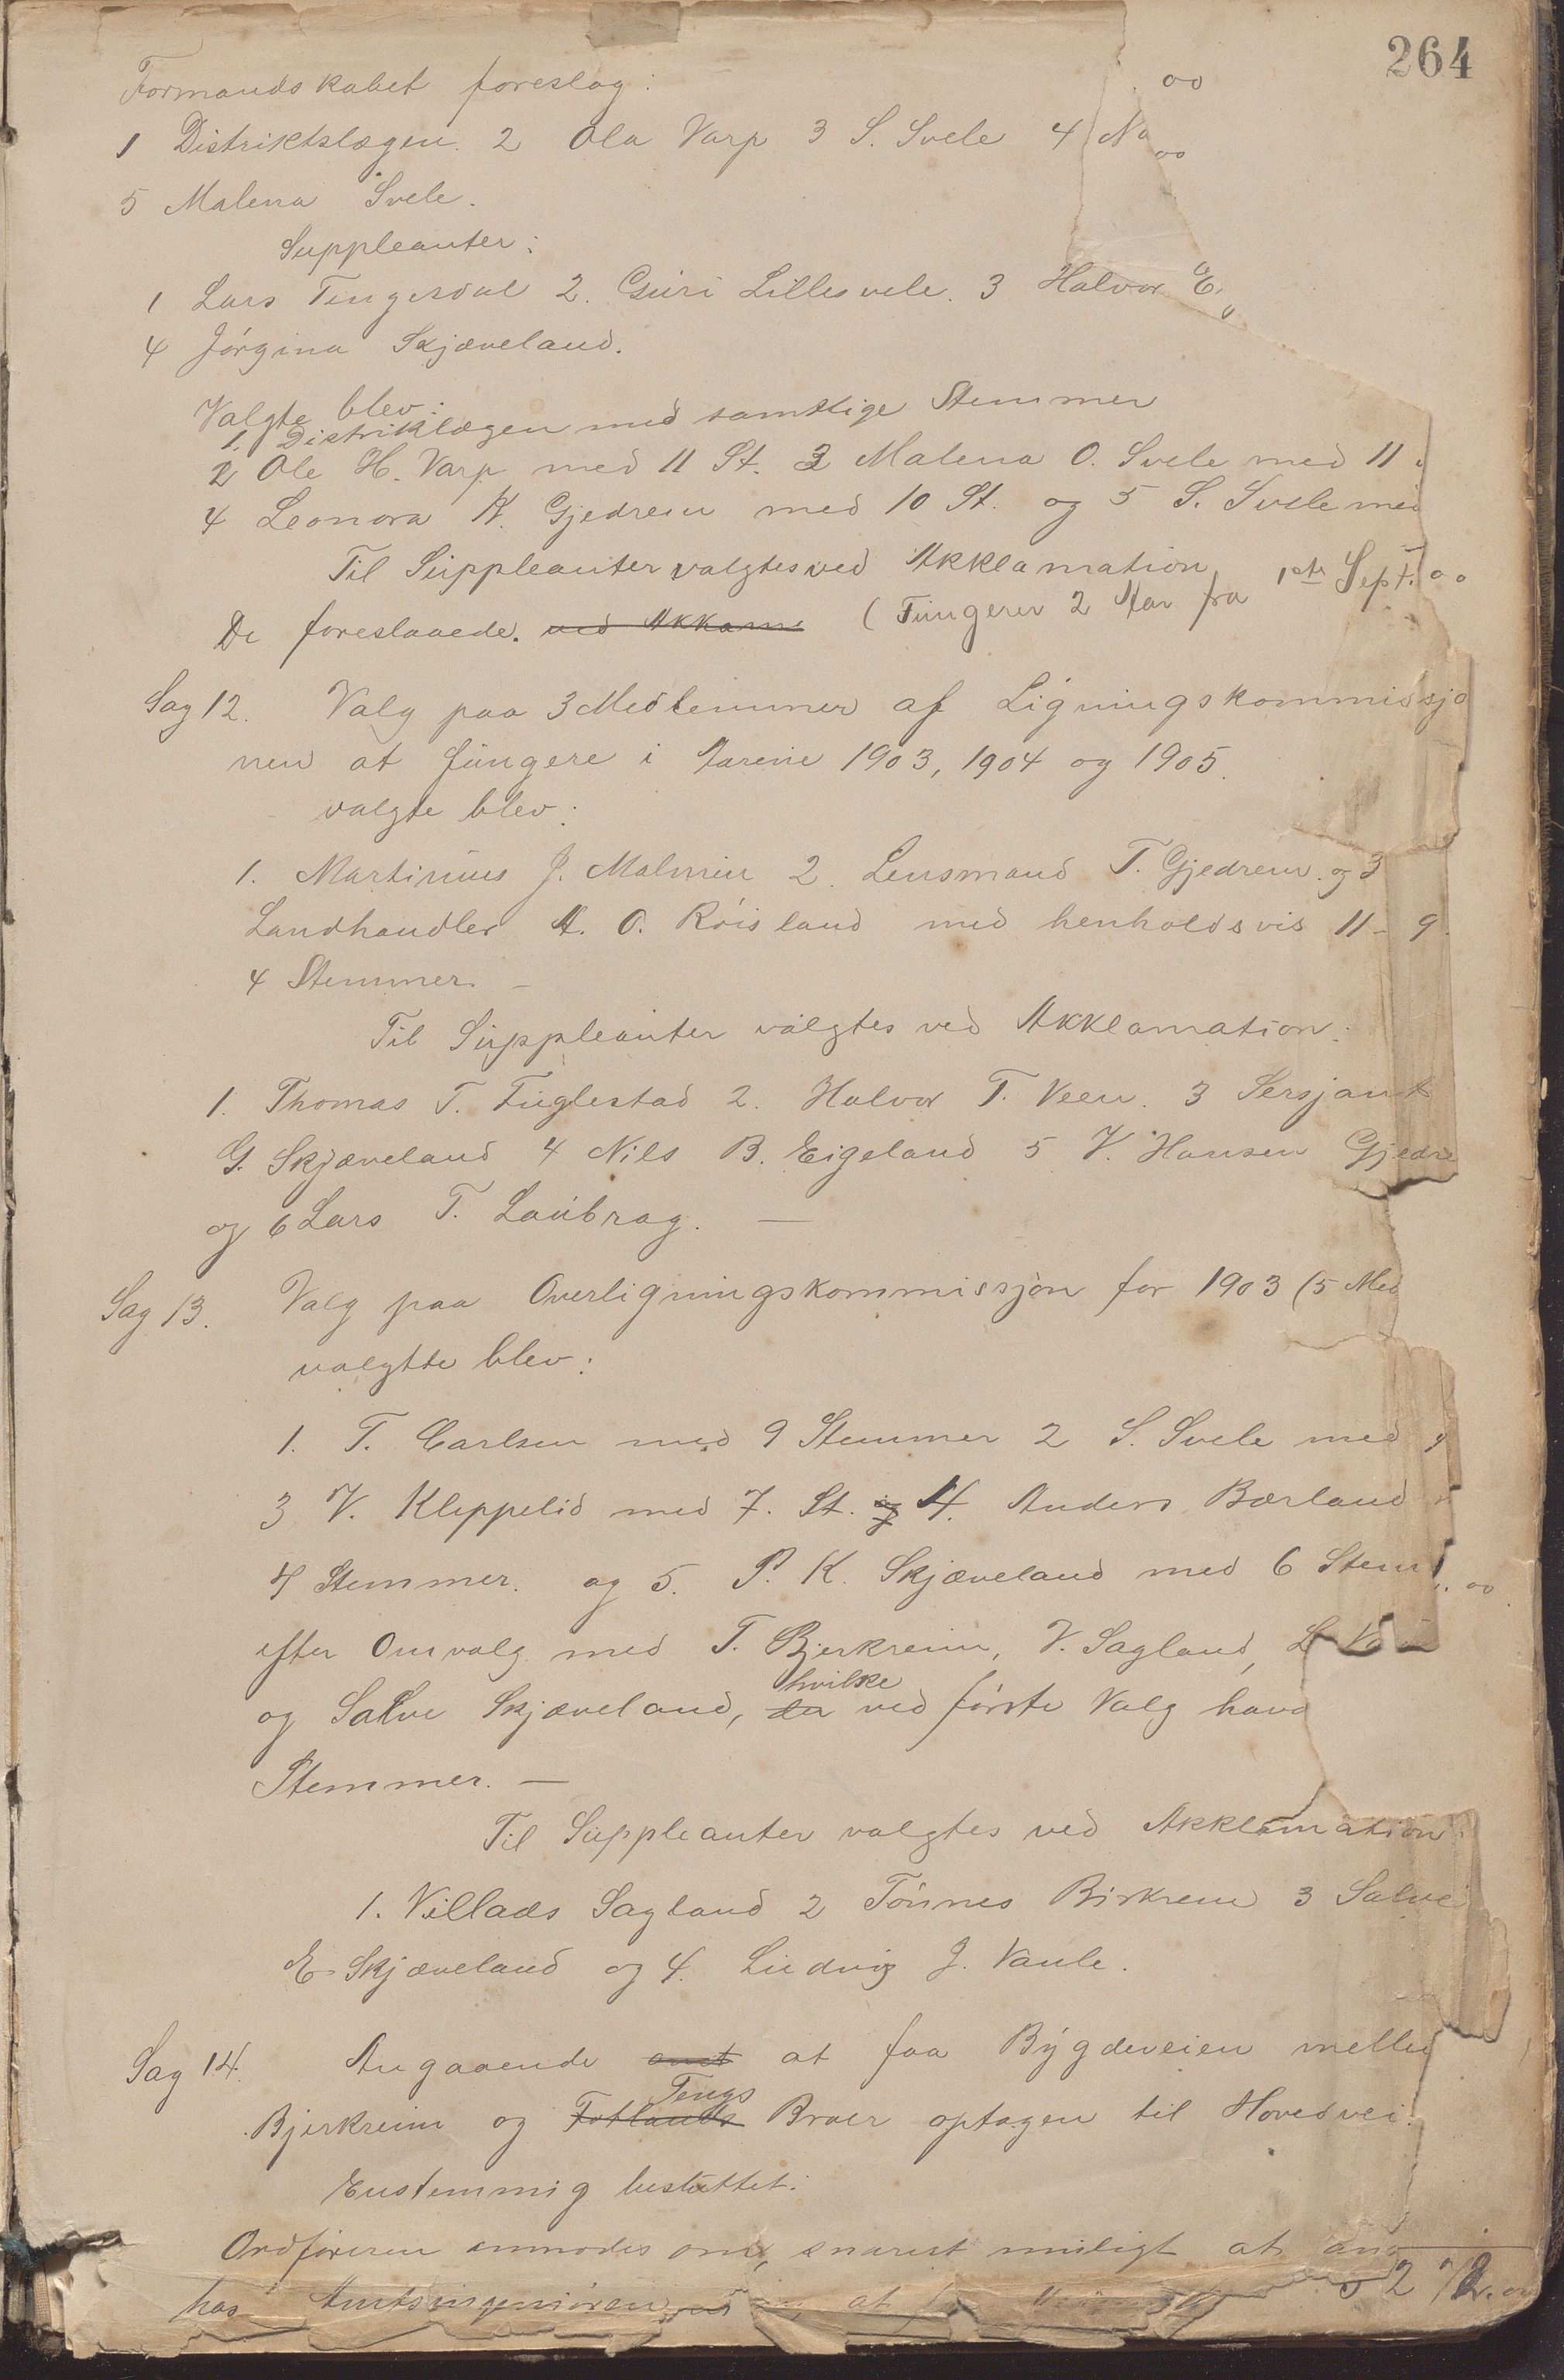 264
Formandskabet foreslog:
1 Distriktslægen. 2 Ola Varp 3 S. Svele 4 No
5 Malena Svele.
Suppleanter:
1 Lars Tengesdal 2. Guri Lillesvele. 3 Halvor E
4 Jórgina Skjæveland.
Valgte blev:
1. Distriklægen med samtlige Stemmer
2 Ole H. Varp med 11 St. 3 Malena O. Svele med 11
4 Leonora K. Gjedrem med 10 St. og 5 S. Svele med
Til Suppleanter valgtes ved Akklamation
De foreslaaede. ved Akkam (Fungerer 2 Aar fra 1ste Sept.
Sag 12. Valg paa 3 Medlemmer af Ligningskommissjo
nen at fungere i Aarene 1903, 1904 og 1905.
valgte blev:
1. Martinius J. Malmin 2. Lensmand T. Gjedrem. og 3
Landhandler A. O. Róisland med henholdsvis 11 - 9.
4 Stemmer. -
Til Suppleanter valgtes ved Akklamation:
1. Thomas T. Fuglestad 2. Halvor T. Veen. 3 Sersjant
G. Skjæveland 4 Nils B. Eigeland 5 V. Hansen Gjedre
og 6 Lars T. Laubrag. —
Sag 13. Valg paa Overligningskommissjon for 1903 (5 Med
valgtte blev:
1. T. Carlsen med 9 Stemmer 2 S. Svele med 9
3 V. Kleppelid med 7. St. og 4. Anders Bærland
4 Stemmer. og 5. P. K. Skjæveland med 6 Stem
efter Omvalg med T. Bjerkreim, V. Sagland, L. Va
og Salve Skjæveland, da hvilke ved fórste Valg havd
Stemmer. —
Til Suppleanter valgtes ved Akklamation:
1. Villads Sagland 2 Tónnes Birkrem 3 Salve
E. Skjæveland og 4. Ludvig J. Vaule.
Sag 14. Angaaende at faa Bygdeveien melle
Bjerkreim og Fotlands Tengs Broer optagen til Hovedvei.
Enstemmig besluttet:
Ordføreren anmodes om, snarest muligt at
hos Amtsingeniøren at
272.